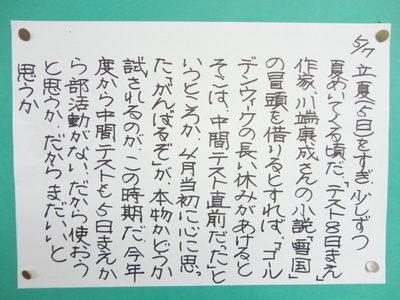 5/7 立夏(5日)をすぎ、少しずつ
夏めいてくる頃だ。「テスト8日まえ」
作家、川端康成さんの小説「雪国」
の冒頭を借りるとすれば、「ゴール
デンウィークの長い休みがあけると
そこは、中間テスト直前だった」と
いうところか。4月当初に心に思っ
た「がんばるぞ」が、本物かどうか
試されるのが、この時期だ。今年
度から中間テストも5日まえか
ら部活動がない。だから使おう
と思うか、だからまだいいと
思うか